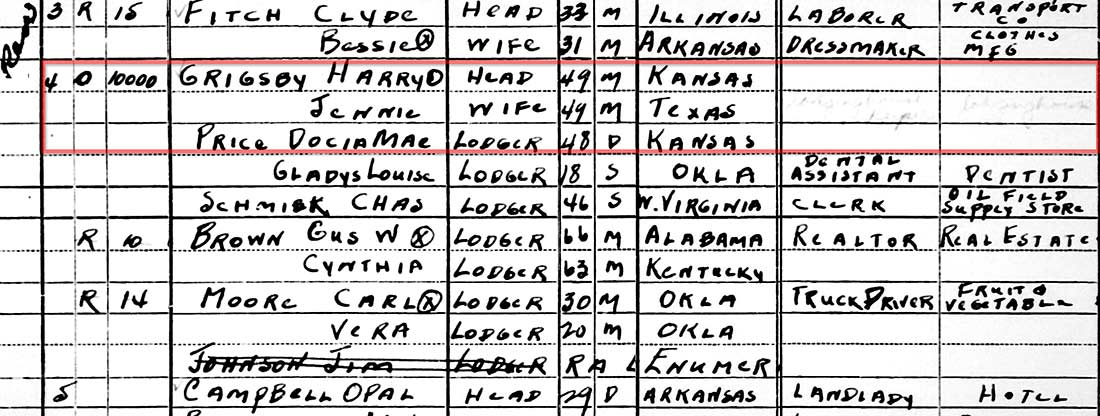 3 R 15 FITCH CLYDE HEAD 33 M ILLINOIS LABORER TRANSPORT CO
Bessie ⓧ WIFE 31 M ARKANSAS DRESSMAKER CLOTHES MFG
4 O 10000 GRIGSBY HARRY O HEAD 49 M KANSAS
JENNIE WIFE 49 M TEXAS
PRICE DOCIA MAE LODGER 48 D KANSAS
GLADYS LOUISE LODGER 18 S OKLA DENTAL ASSISTANT DENTIST
CHAS LODGER 46 S W. VIRGINIA CLERK OIL FIELD SUPPLY STORE
R 10 BROWN GUS W ⓧ LODGER 66 M ALABAMA REALTOR REAL ESTATE
CYNTHIA LODGER 63 M KENTUCKY
R 14 MOORE CARL ⓧ LODGER 30 M OKLA TRUCK DRIVER FRUIT & VEGETABLE
VERA LODGER 20 M OKLA
JOHNSON JIM LODGER R A L ENUMER
5 CAMPBELL OPAL HEAD 29 D ARKANSAS LANDLADY HOTEL